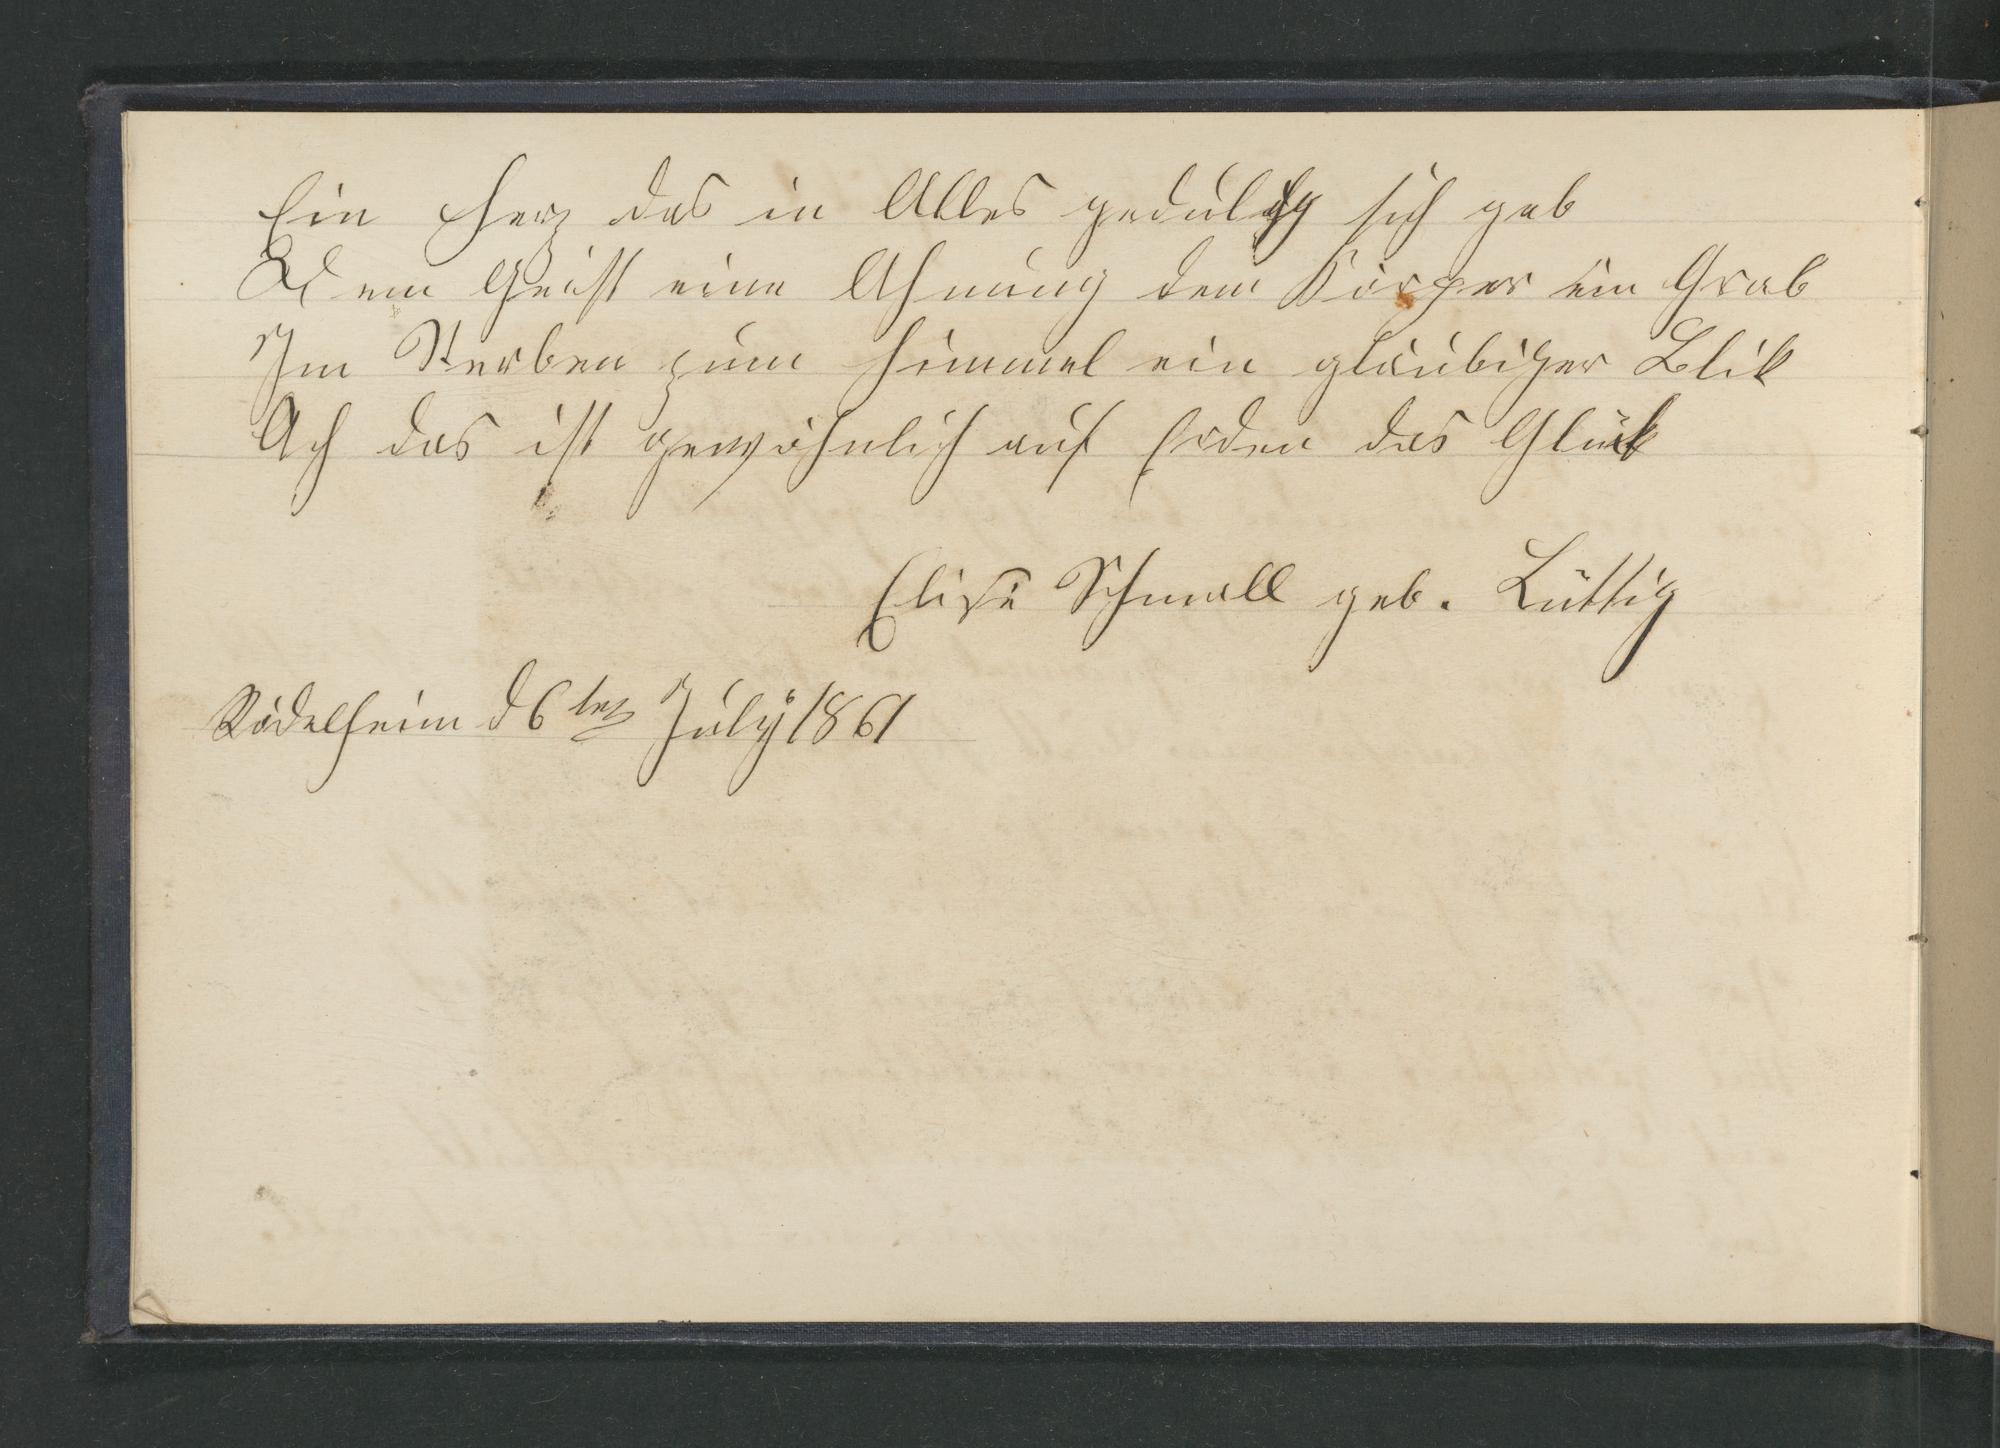 Ein Herz das in Alles geduldig sich gab
Dem Geist eine Ahnung dem Körper ein Grab
Im Sterben zum Himmel ein gläubiger Blik
Ach das ist gewöhnlich auf Erden das Glük
Elise Schmall geb. Lüttig
Rödelheim d 6ten July 1861